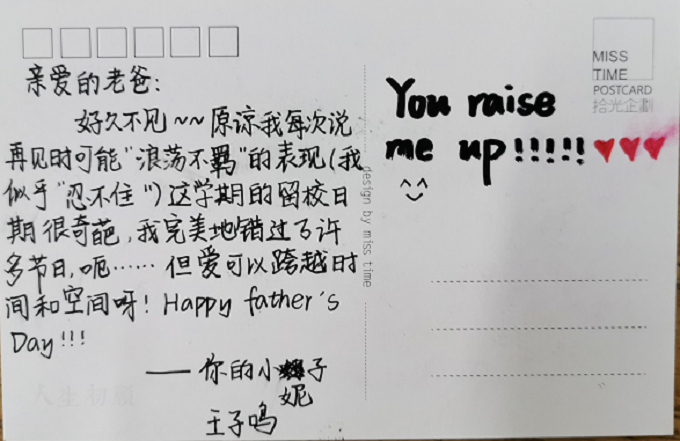 亲爱的老爸：
好久不见~~原谅我每次说
再见时可能"浪荡不羁"的表现(我
似乎"忍不住")这学期的留校日
期很奇葩，我完美地错过了许
多节日，呃……但爱可以跨越时
间和空间呀！Happy father's
Day!!!
——你的小妮子
王子鸣
You raise
me up!!!!!
MISS
TIME
POSTCARD
拾光企劃
design by miss time
人生初願